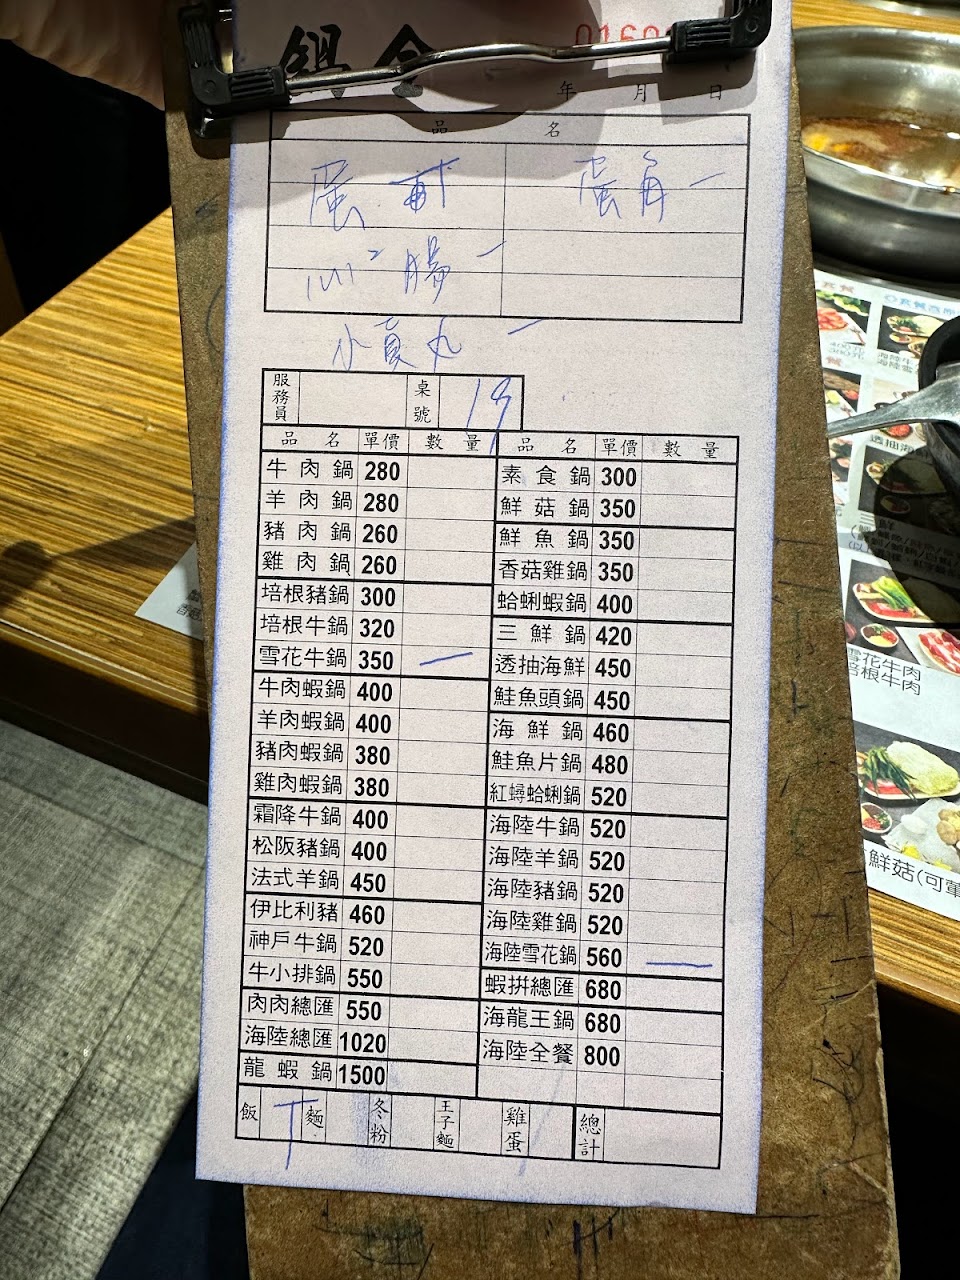 年 月 日
品 名
蛋角 一
腸 一
丸 一
服務員 桌號 19
品 名 單價 數 量 品 名 單價 數 量
牛肉鍋 280 素食鍋 300
羊肉鍋 280 鮮菇鍋 350
豬肉鍋 260 鮮魚鍋 350
雞肉鍋 260 香菇雞鍋 350
培根豬鍋 300 蛤蜊蝦鍋 400
培根牛鍋 320 三鮮鍋 420
雪花牛鍋 350 一 透抽海鮮 450
牛肉蝦鍋 400 鮭魚頭鍋 450
羊肉蝦鍋 400 海鮮鍋 460
豬肉蝦鍋 380 鮭魚片鍋 480
雞肉蝦鍋 380 紅蟳蛤蜊鍋 520
霜降牛鍋 400 海陸牛鍋 520
松阪豬鍋 400 海陸羊鍋 520
法式羊鍋 450 海陸豬鍋 520
伊比利豬 460 海陸雞鍋 520
神戶牛鍋 520 海陸雪花鍋 560 一
牛小排鍋 550 蝦拚總匯 680
肉肉總匯 550 海龍王鍋 680
海陸總匯 1020 海陸全餐 800
龍蝦鍋 1500
飯 麵 冬粉 王子麵 雞蛋 總計
雪花牛肉
培根牛肉
鮮菇(可葷